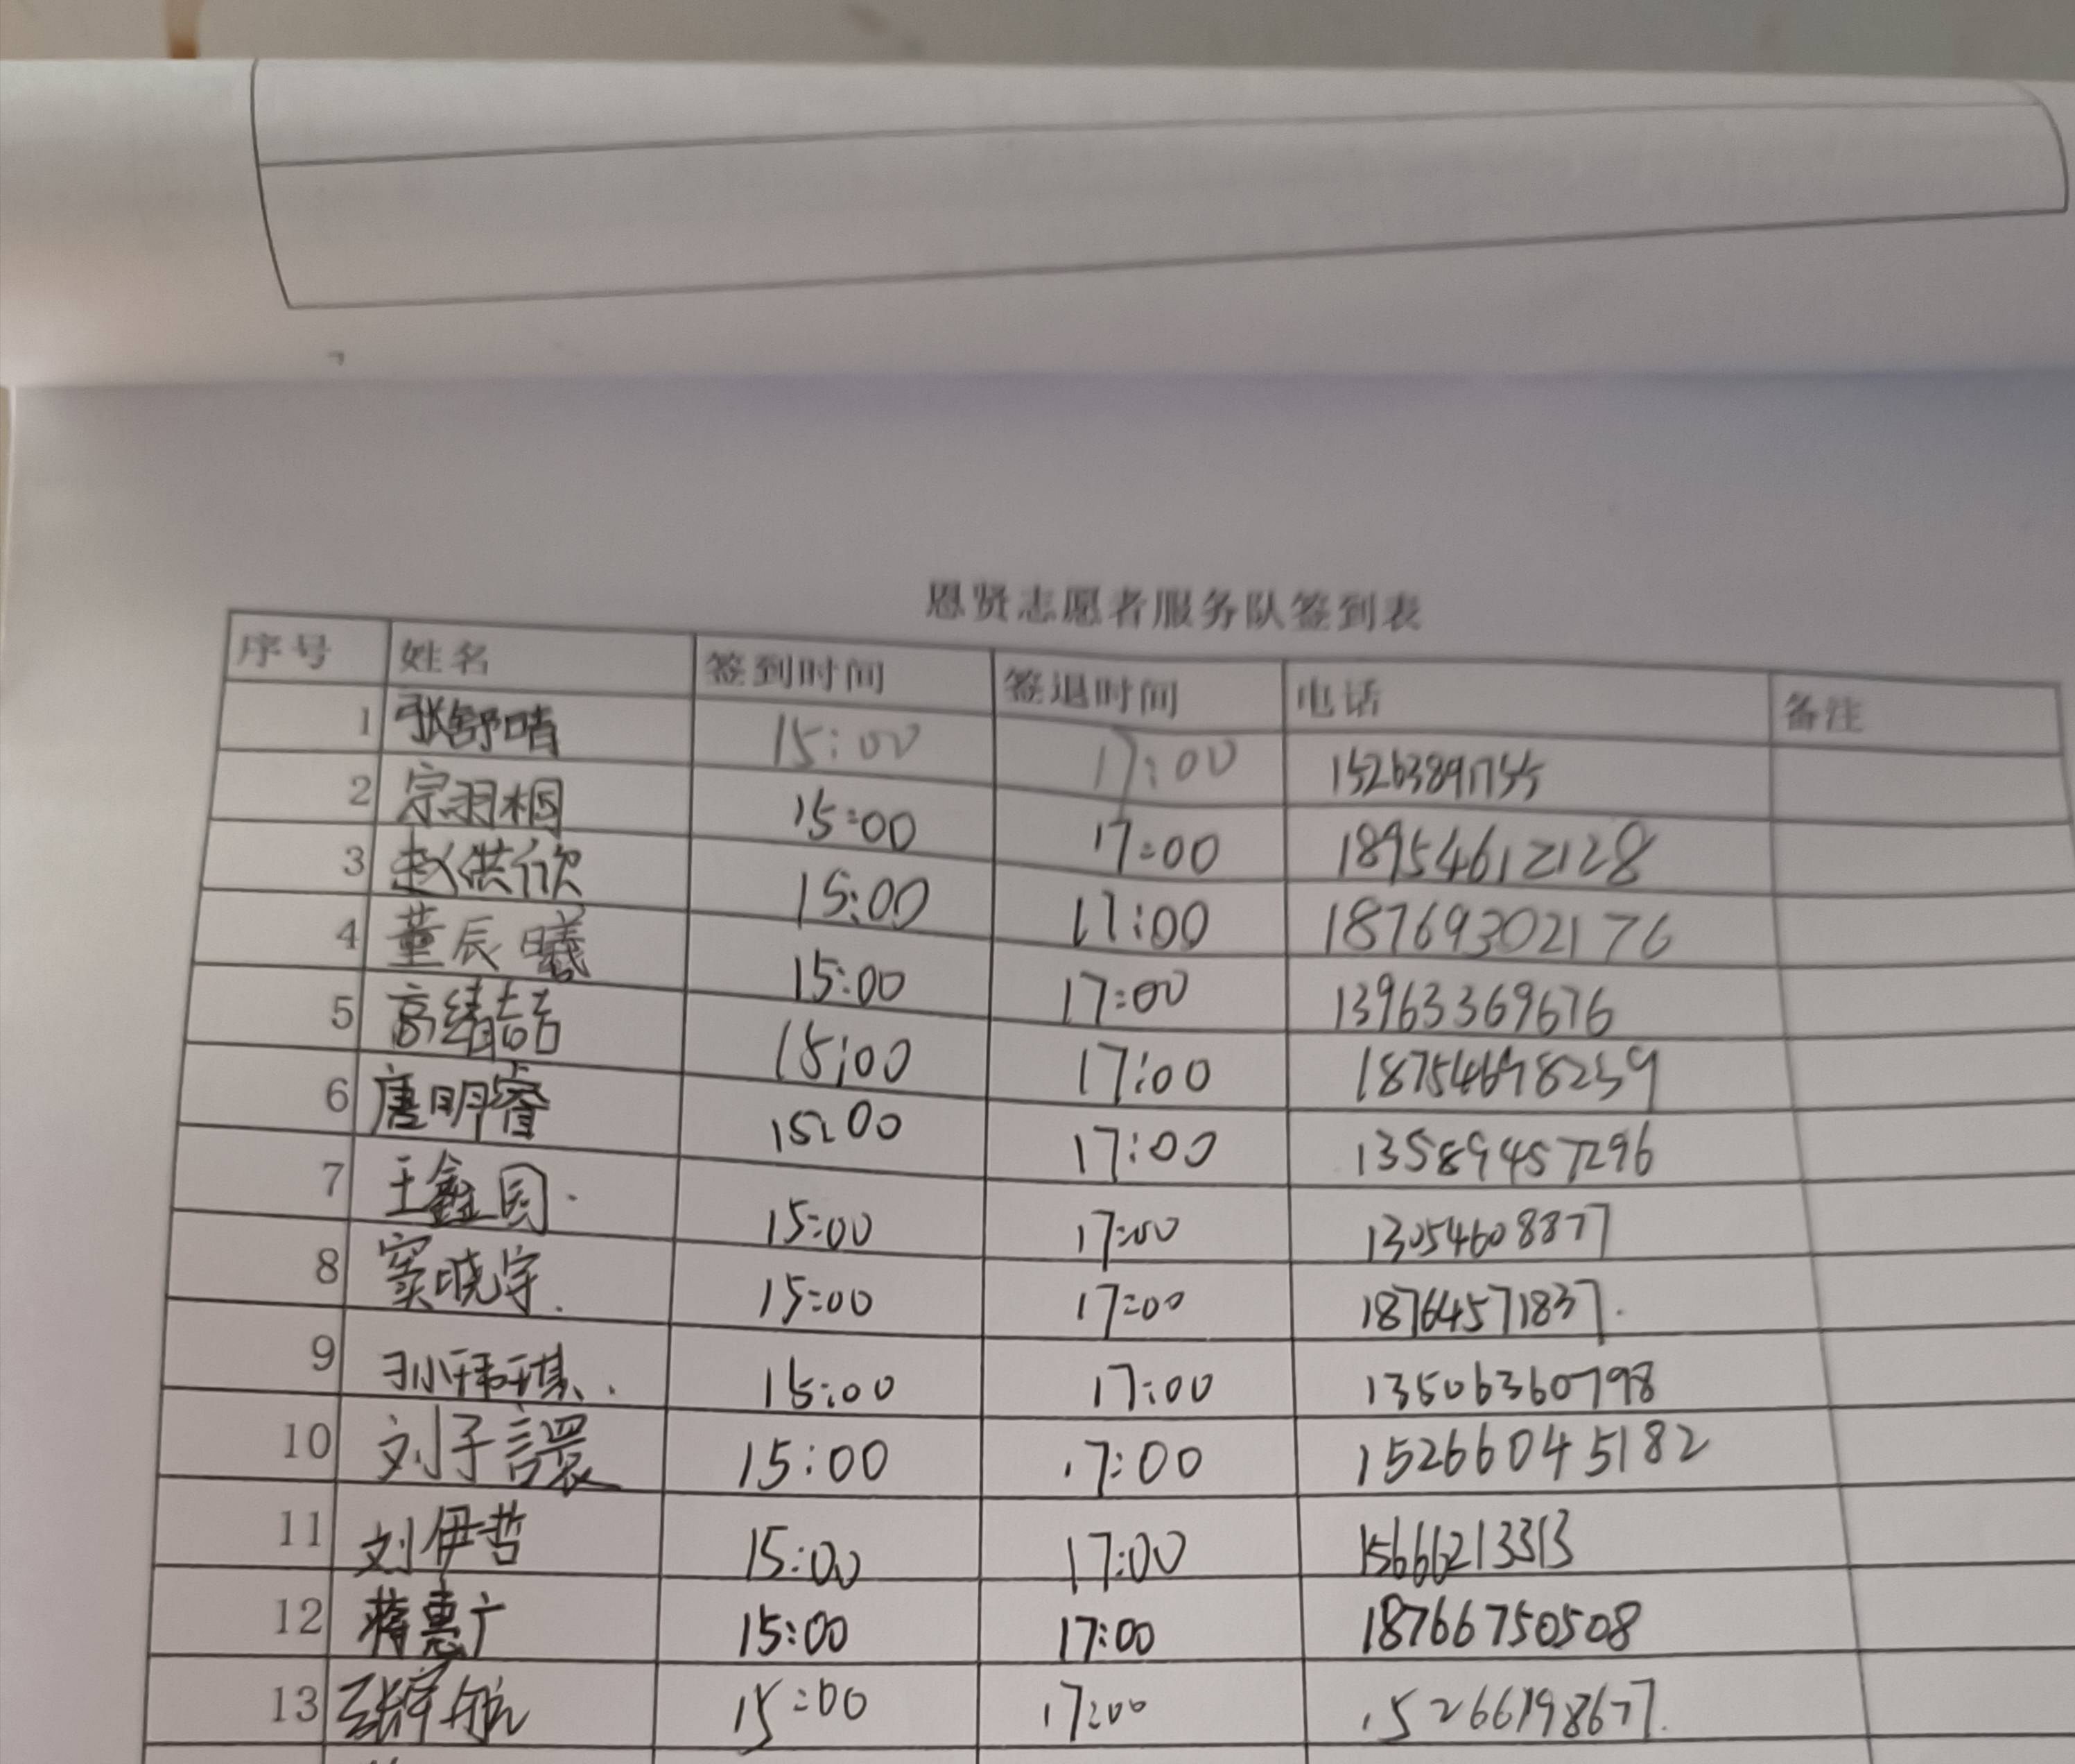 恩贤志愿者服务队签到表
序号 姓名 签到时间 签退时间 电话 备注
1 张舒晴 15:00 17:00 15263891755
2 宗羽桐 15:00 17:00 18954612128
3 赵洪欣 15:00 17:00 18769302176
4 董辰曦 15:00 17:00 13963369676
5 高绪喆 15:00 17:00 18754698259
6 唐明睿 15:00 17:00 13589457296
7 王鑫国 15:00 17:00 13054608877
8 窦晓宇 15:00 17:00 18764571837
9 孙祎琪 15:00 17:00 13506360798
10 刘子譞 15:00 17:00 15266045182
11 刘伊哲 15:00 17:00 15666213313
12 蒋惠广 15:00 17:00 18766750508
13 航 15:00 17:00 15266198677